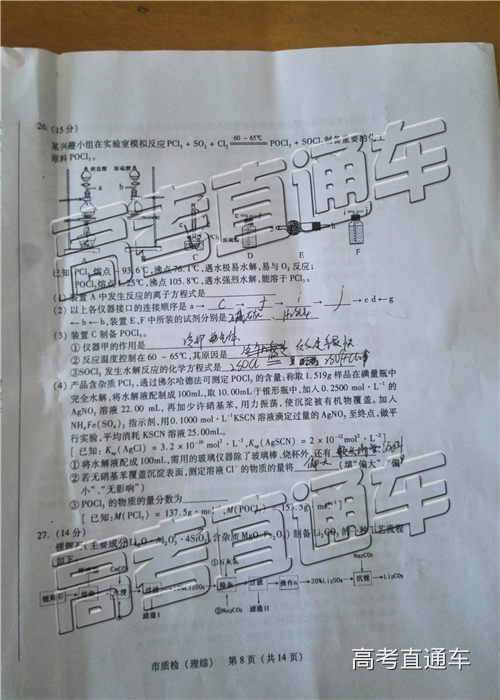 26.(15分)
某兴趣小组在实验室模拟反应PCl₃ + SO₂ + Cl₂ 60－65℃ POCl₃ + SOCl₂制备重要的化工
原料POCl₃。
浓盐酸 浓硫酸
a b
A B C D E F
已知:PCl₃熔点－93.6℃,沸点76.1℃,遇水极易水解,易与O₂反应;
POCl₃熔点1.25℃,沸点105.8℃,遇水强烈水解,能溶于PCl₃。
(1)装置A中发生反应的离子方程式是
(2)以上各仪器接口的连接顺序是a→ c → f → i → j →c d←g
←h←b,装置E、F中所装的试剂分别是
(3)装置C制备POCl₃。
①仪器甲的作用是
②反应温度控制在60－65℃,其原因是
③SOCl₂发生水解反应的化学方程式是
(4)产品含杂质PCl₃,通过佛尔哈德法可测定POCl₃的含量:称取1.519g样品在碘量瓶中
完全水解,将水解液配制成100mL,取10.00mL于锥形瓶中,加入0.2500 mol·L⁻¹的
AgNO₃溶液22.00 mL,再加少许硝基苯,用力振荡,使沉淀被有机物覆盖。加入
NH₄Fe(SO₄)₂指示剂,用0.1000 mol·L⁻¹KSCN溶液滴定过量的AgNO₃至终点,做平
行实验,平均消耗KSCN溶液25.00mL。
[已知:Ksp(AgCl)=3.2×10⁻¹⁰mol²·L⁻²,Ksp(AgSCN)=2×10⁻¹²mol²·L⁻²]
①将水解液配成100mL,需用的玻璃仪器除了玻璃棒、烧杯外,还有
②若无硝基苯覆盖沉淀表面,测定溶液Cl⁻的物质的量将 偏大 (填“偏大”、“偏
小”、“无影响”)
③POCl₃的物质的量分数为
[已知:M(PCl₃)=137.5g·mol⁻¹,M(POCl₃)=153.5g·mol⁻¹]
27.(14分)
锂辉石(主要成分Li₂O·Al₂O₃·4SiO₂,含杂质MgO、Fe₂O₃)制备Li₂CO₃的一种工艺流程
如下:
CaCO₃ Na₂CO₃
锂辉石 水浸 过滤 Li₂SO₄ 除杂 过滤 操作a 20%Li₂SO₄ 沉锂 Li₂CO₃
滤渣I ②Na₂CO₃ 滤渣II
市质检(理综) 第8页(共14页)
高考直通车
高考直通车
高考直通车
高考直通车